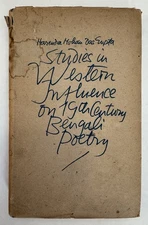 Harendra Mohan Das Gupta
Studies in
Western
Influence
on 19th Century
Bengali
Poetry